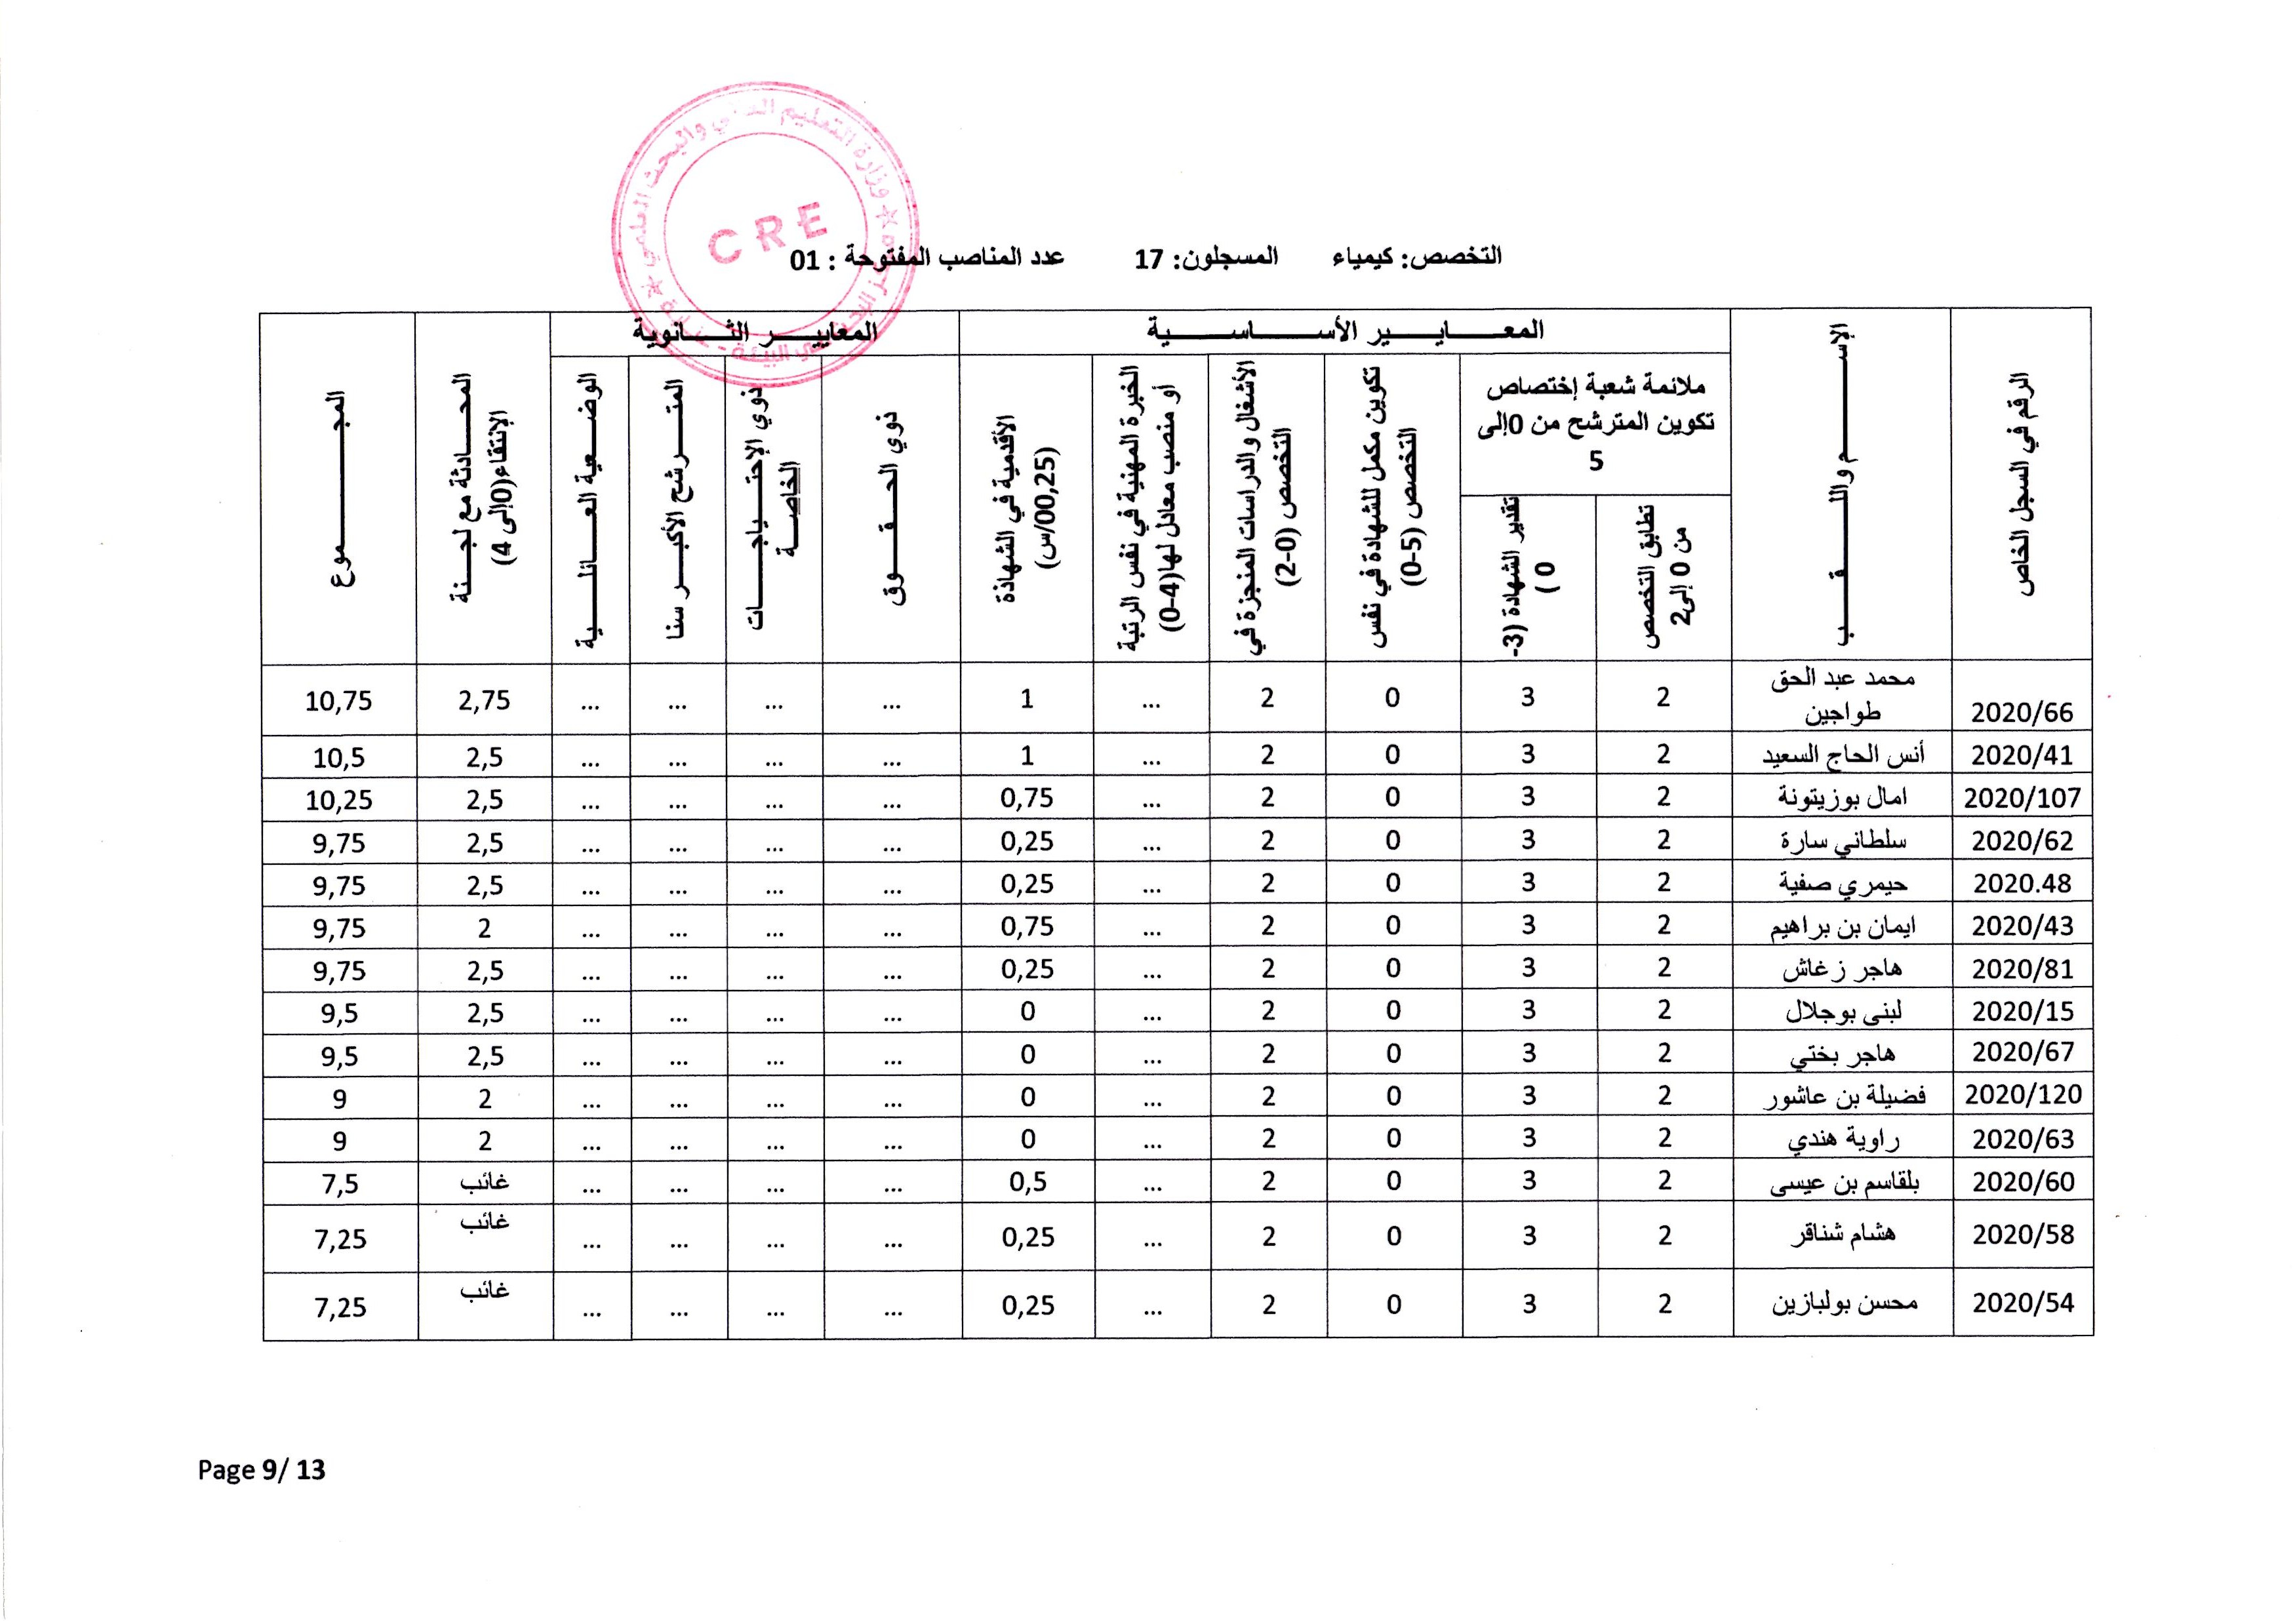 وزارة التعليم العالي والبحث العلمي
CRE
التخصص: كيمياء المسجلون: 17 عدد المناصب المفتوحة : 01
الرقم في السجل الخاص
الإســـم واللـــقـــب
المعـــايـــير الأســـاســـية
المعاييـــر الثـــانوية
ملائمة شعبة إختصاص
تكوين المترشح من 0إلى
5
تطابق التخصص
من 0 إلى2
تقدير الشهادة (3-
0 )
تكوين مكمل للشهادة في نفس
التخصص (5-0)
الأشغال والدراسات المنجزة في
التخصص (0-2)
الخبرة المهنية في نفس الرتبة
أو منصب معادل لها(4-0)
الأقدمية في الشهادة
(00,25/س)
ذوي الحـــقـــوق
ذوي الإحتـــياجـــات
الخاصـــة
المتـــرشح الأكبـــر سنا
الوضـــعية العـــائلـــية
المحـــادثة مع لجـــنة
الإنتقاء(0إلى 4)
المجـــموع
2020/66 محمد عبد الحق طواجين 2 3 0 2 ... 1 ... ... ... ... 2,75 10,75
2020/41 أنس الحاج السعيد 2 3 0 2 ... 1 ... ... ... ... 2,5 10,5
2020/107 امال بوزيتونة 2 3 0 2 ... 0,75 ... ... ... ... 2,5 10,25
2020/62 سلطاني سارة 2 3 0 2 ... 0,25 ... ... ... ... 2,5 9,75
2020.48 حيمري صفية 2 3 0 2 ... 0,25 ... ... ... ... 2,5 9,75
2020/43 ايمان بن براهيم 2 3 0 2 ... 0,75 ... ... ... ... 2 9,75
2020/81 هاجر زغاش 2 3 0 2 ... 0,25 ... ... ... ... 2,5 9,75
2020/15 لبنى بوجلال 2 3 0 2 ... 0 ... ... ... ... 2,5 9,5
2020/67 هاجر بختي 2 3 0 2 ... 0 ... ... ... ... 2,5 9,5
2020/120 فضيلة بن عاشور 2 3 0 2 ... 0 ... ... ... ... 2 9
2020/63 راوية هندي 2 3 0 2 ... 0 ... ... ... ... 2 9
2020/60 بلقاسم بن عيسى 2 3 0 2 ... 0,5 ... ... ... ... غائب 7,5
2020/58 هشام شناقر 2 3 0 2 ... 0,25 ... ... ... ... غائب 7,25
2020/54 محسن بولبازين 2 3 0 2 ... 0,25 ... ... ... ... غائب 7,25
Page 9/ 13